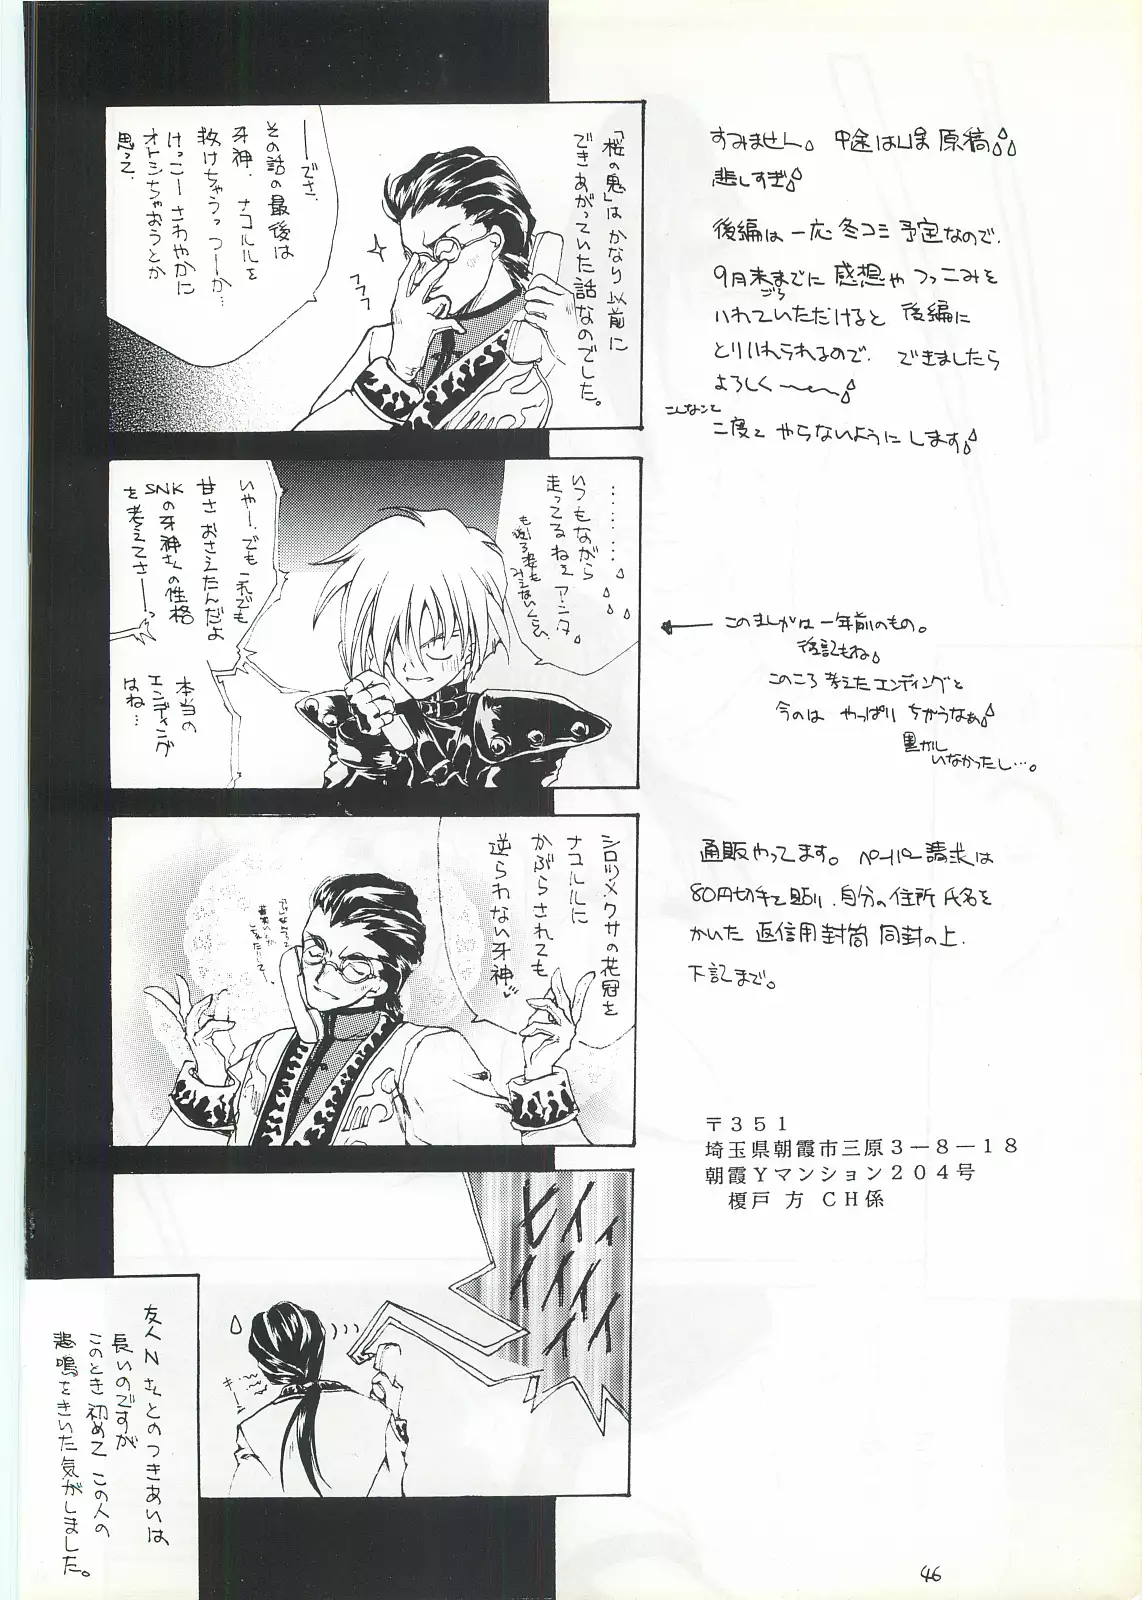 「桜の鬼」はかなり以前に
できあがっていた話なのでした。
フフフ
――でさ、
その話の最後は
牙神、ナコルルを
救けちゃうっつーか…
けっこーさわやかに
オトシちゃおうとか
思って、
………
いつもながら
走ってるねェアンタ
も、後ろ姿も
みえないくらい
いやー、でもこれでも
甘さおさえたんだよ
SNKの牙神さんの性格
を考えてさ――っ
本当の
エンディング
はね…
シロツメクサの花冠を
ナコルルに
かぶらされても
逆らわない牙神
ヒィィ
イイイ
イイ
キーン
友人Nさんとのつきあいは
長いのですが
このとき初めてこの人の
悲鳴をきいた気がしました。
すみません 中途はんぱ原稿
悲しすぎ
後編は一応冬コミ予定なので、
9月末までに感想やつっこみを
ごろ
いれていただけると 後編に
とりいれられるので、できましたら
よろしく〜〜
こんなこと
二度とやらないようにします
← このまんがは一年前のもの。
後記もね
このころ考えたエンディングと
今のは やっぱりちがうなぁ
黒がし
いなかったし…。
通販やってます。ペーパー請求は
80円切手を貼り、自分の住所氏名を
かいた 返信用封筒 同封の上、
下記まで。
〒351
埼玉県朝霞市三原3－8－18
朝霞Yマンション204号
榎戸 方 CH係
46